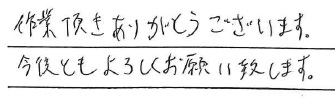 作業頂きありがとうございます。
今後ともよろしくお願い致します。